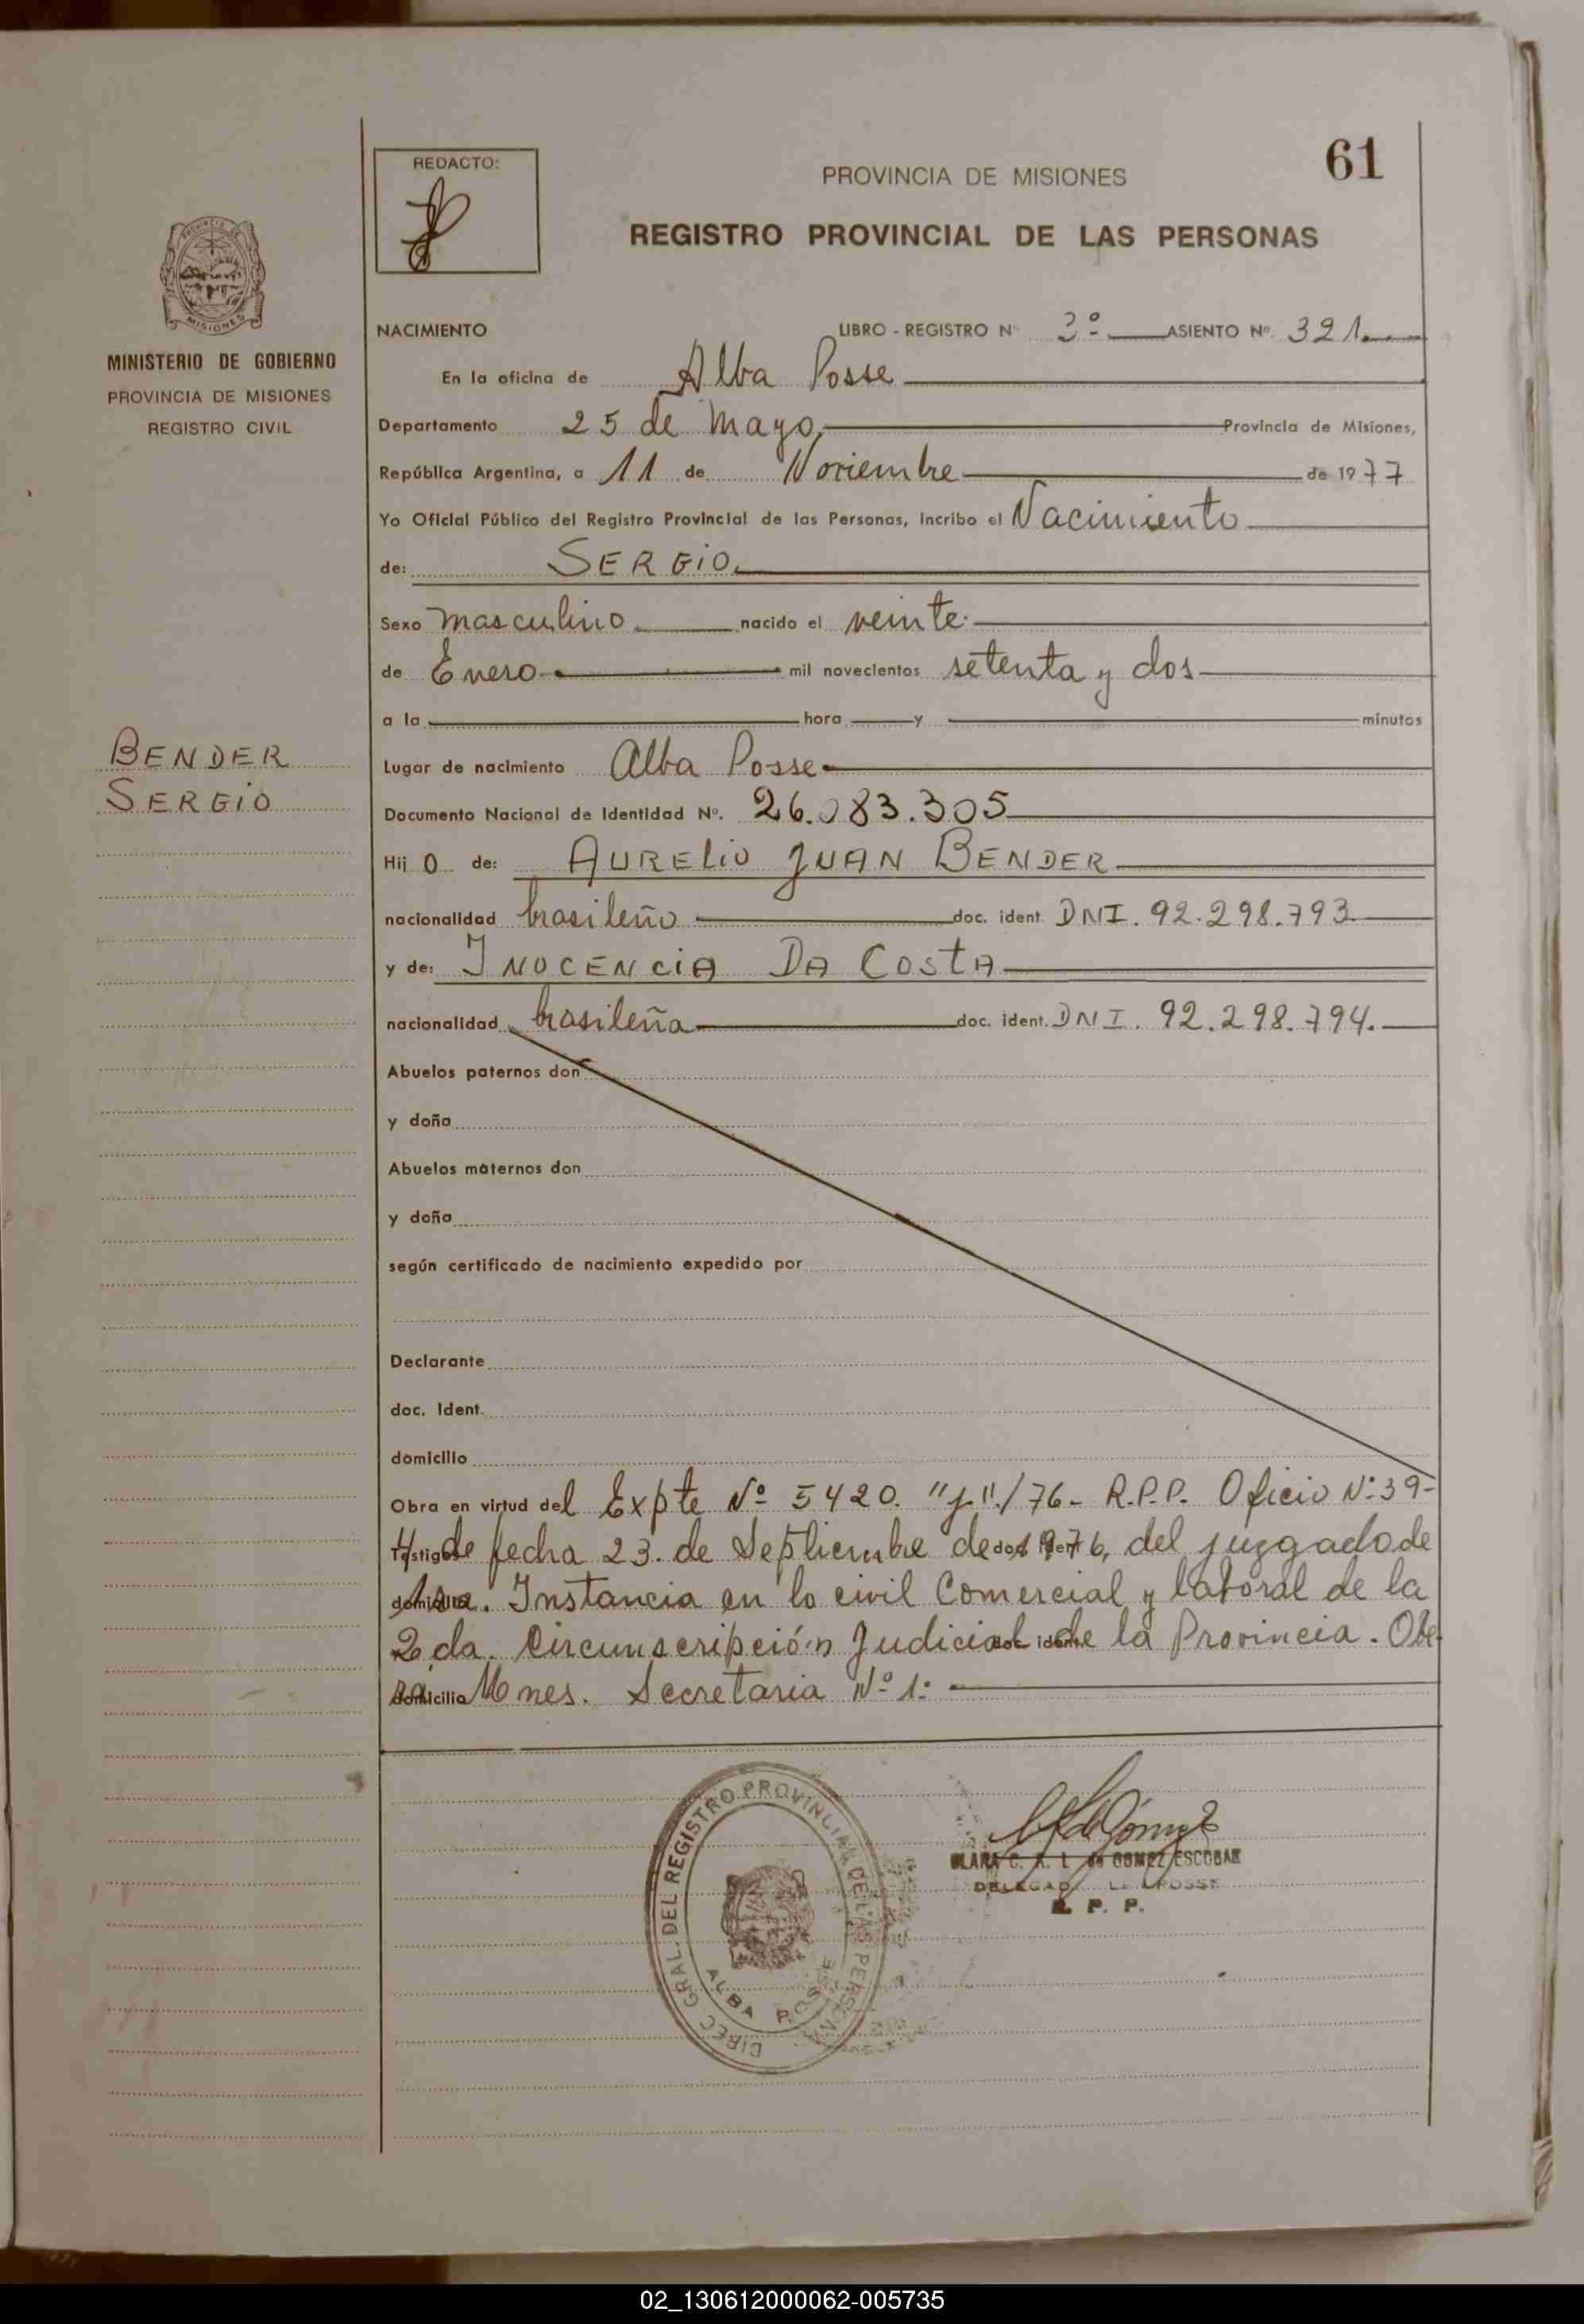 61
REDACTO:
PROVINCIA DE MISIONES
REGISTRO PROVINCIAL DE LAS PERSONAS
PROVINCIA DE
MISIONES
MINISTERIO DE GOBIERNO
PROVINCIA DE MISIONES
REGISTRO CIVIL
BENDER
SERGIO
NACIMIENTO LIBRO - REGISTRO Nº 3º ASIENTO Nº 321
En la oficina de Alba Posse
Departamento 25 de Mayo Provincia de Misiones,
República Argentina, a 11 de Noviembre de 1977
Yo Oficial Público del Registro Provincial de las Personas, incribo el Nacimiento
de: SERGIO
Sexo masculino nacido el veinte
de Enero mil novecientos setenta y dos
a la hora y minutos
Lugar de nacimiento Alba Posse
Documento Nacional de Identidad Nº. 26.083.305
Hij o de: AURELIO JUAN BENDER
nacionalidad brasileño doc. ident. DNI. 92.298.793
y de: INOCENCIA DA COSTA
nacionalidad brasileña doc. ident. DNI. 92.298.794.
Abuelos paternos don
y doña
Abuelos maternos don
y doña
según certificado de nacimiento expedido por
Declarante
doc. Ident.
domicilio
Obra en virtud del Expte Nº 5420. "J"/76- R.P.P. Oficio Nº 39-
Testigos de fecha 23. de Septiembre de 1976, del juzgado de
domicilio 1ra. Instancia en lo civil Comercial y laboral de la
2da. Circunscripción Judicial de la Provincia. Obe-
domicilio rá Mnes. Secretaria Nº 1.
DIREC GRAL. DEL REGISTRO PROVINCIAL DE LAS PERSONAS
ALBA POSSE
CLARA C. de GOMEZ ESCOBAR
DELEGAD POSSE
R. P. P.
02_130612000062-005735